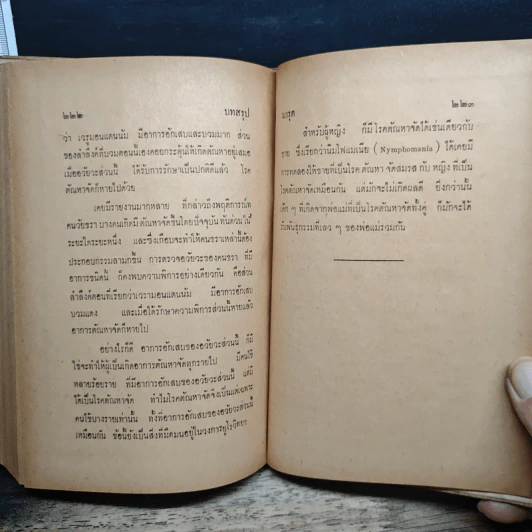 ๒๒๒ บทสรุป
ว่า เวรูมอนแตนนัม มีอาการอักเสบและบวมมาก ส่วน
ของลำลึงค์ที่บวมตอนนี้เองคอยกระตุ้นให้เกิดตัณหาอยู่เสมอ
เมื่ออวัยวะส่วนนี้ ได้รับการรักษาเป็นปกติดีแล้ว โรค
ตัณหาจัดก็หายไปด้วย
เคยมีรายงานมากหลาย ที่กล่าวถึงพฤติการณ์
คนวัยชรา บางคนเกิดมีตัณหาจัดขึ้นโดยปัจจุบันทันด่วนใน
ระยะใดระยะหนึ่ง และซึ่งเกือบจะทำให้คนชราเหล่านี้ต้อง
ประกอบกรรมลามกขึ้น การตรวจอวัยวะของคนชรา ที่มี
อาการชนิดนี้ ก็คงพบความพิการอย่างเดียวกัน คือส่วน
ลำลึงค์ตอนที่เรียกว่าเวรามอนแตนนัม มีอาการอักเสบ
บวมแดง และเมื่อได้รักษาความพิการส่วนนี้หายแล้ว
อาการตัณหาจัดก็หายไป
อย่างไรก็ดี อาการอักเสบของอวัยวะส่วนนี้ ก็มิ
ใช่จะทำให้ผู้เป็นเกิดอาการตัณหาจัดทุกรายไป มีคนไข้
หลายร้อยราย ที่มีอาการอักเสบของอวัยวะส่วนนี้ แต่มิ
ได้เป็นโรคตัณหาจัด ทำไมโรคตัณหาจัดจึงเป็นแต่เฉพาะ
คนไข้บางรายเท่านั้น ทั้งที่อาการอักเสบของอวัยวะส่วนนี้
เหมือนกัน ข้อนี้ยังเป็นสิ่งที่มืดมนอยู่ในวงการยูโรวิทยา
นารุต ๒๒๓
สำหรับผู้หญิง ก็มีโรคตัณหาจัดได้เช่นเดียวกับ
ชาย ซึ่งเรียกว่านิมโฟแมเนีย (Nymphomania) ได้เคยมี
การทดลองให้ชายที่เป็นโรคตัณหาจัดสมรสกับหญิงที่เป็น
โรคตัณหาจัดเหมือนกัน แต่มักจะไม่เกิดผลดี ยิ่งกว่านั้น
เด็ก ๆ ที่เกิดจากพ่อแม่ที่เป็นโรคตัณหาจัดทั้งคู่ ก็มักจะได้
รับพันธุกรรมที่เลว ๆ ของพ่อแม่รวมกัน